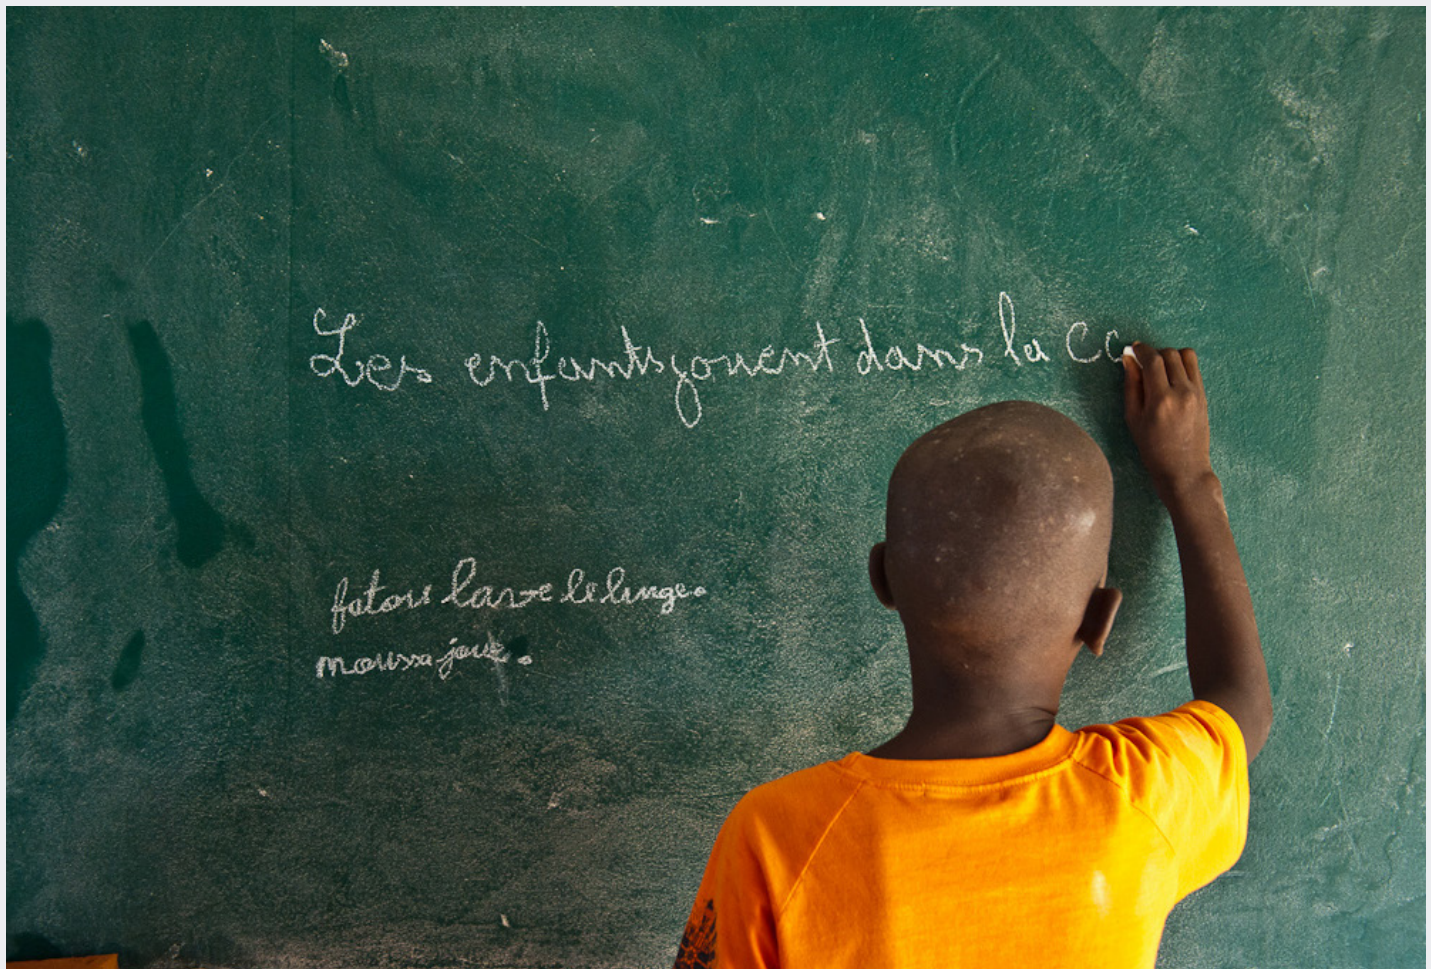 Les enfants jouent dans la cc
fatou lave le linge.
moussa joue.